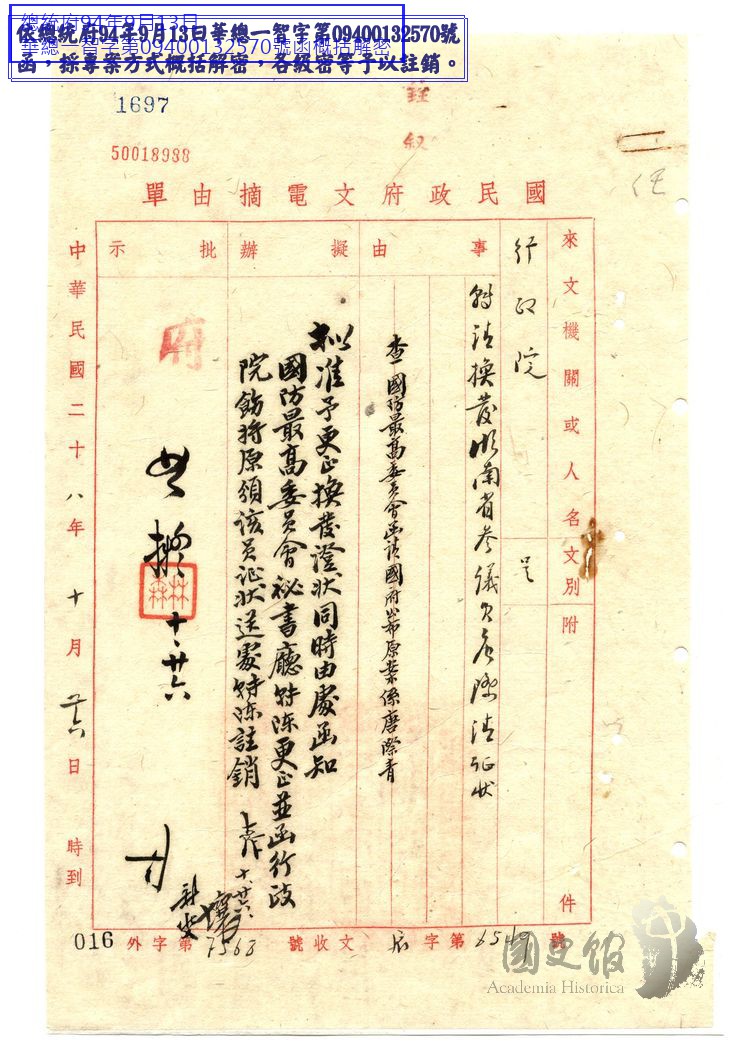 總統府94年9月13日
華總一智字第09400132570號函概括解密
依總統府94年9月13日華總一智字第09400132570號
函,採專案方式概括解密,各級密等予以註銷。
1697
銓
敘
50018988
國民政府文電摘由單
來文機關或人名
文別
附
件
行政院
呈
事由
轉請換發湖南省參議員唐際清証狀
查國防最高委員會函請國府公布原案係唐際青
擬辦
擬准予更正換發證狀同時由處函知
國防最高委員會祕書廳特陳更正並函行政
院飭將原領該員証狀送處特陳註銷
十、廿六
批示
府
如擬
十、廿六
中華民國二十八年十月廿六日
時到
號
第6549
字
收文
號
第7563
外字
016
國史館
Academia Historica